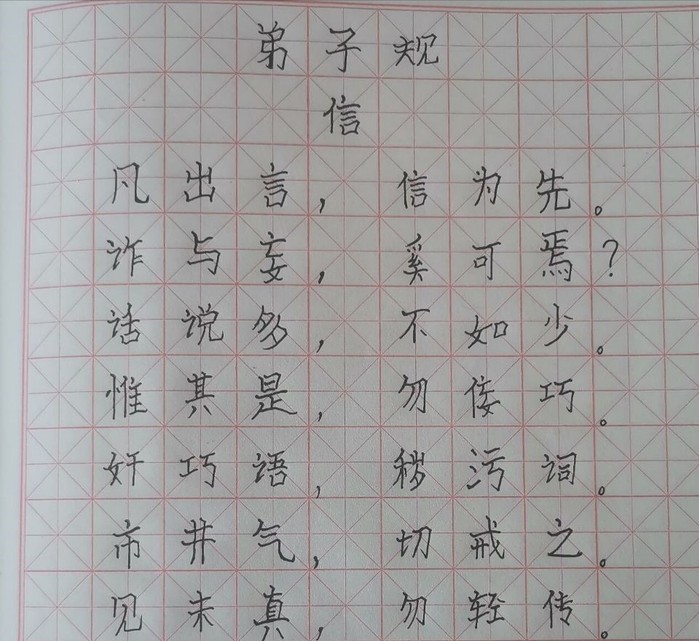 弟子规
信
凡出言，信为先。
诈与妄，奚可焉？
话说多，不如少。
惟其是，勿佞巧。
奸巧语，秽污词。
市井气，切戒之。
见未真，勿轻传。